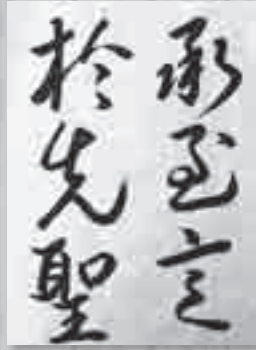 承至言
於先聖